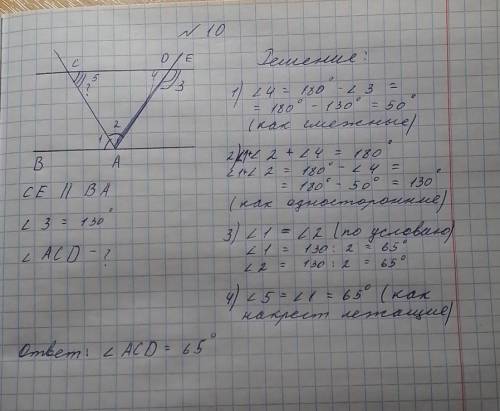 № 10
C D E
5 4 3
?
1 2
B A
CE || BA
∠3 = 130°
∠ACD - ?
Решение:
1) ∠4 = 180° - ∠3 =
= 180° - 130° = 50°
(как смежные)
2) ∠1+∠2 + ∠4 = 180°
∠1+∠2 = 180° - ∠4 =
= 180° - 50° = 130°
(как односторонние)
3) ∠1 = ∠2 (по условию)
∠1 = 130 : 2 = 65°
∠2 = 130 : 2 = 65°
4) ∠5 = ∠1 = 65° (как
накрест лежащие)
Ответ: ∠ACD = 65°